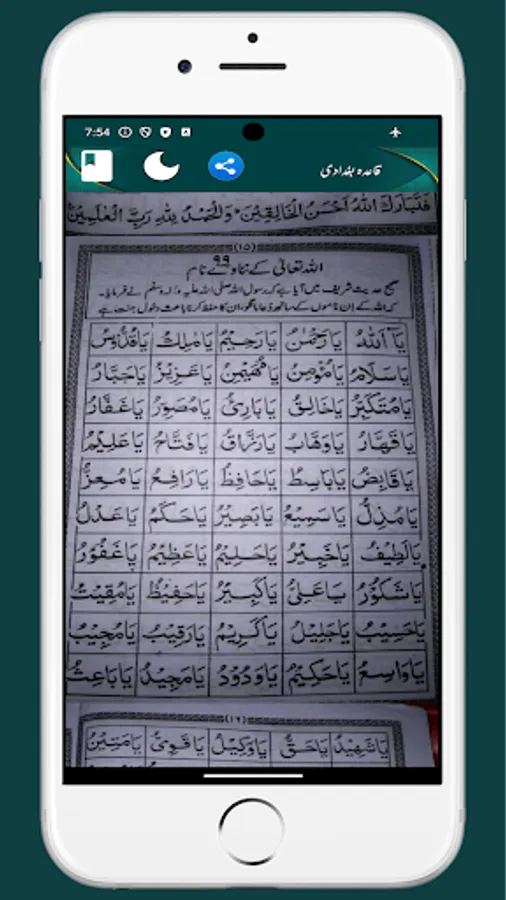 7:54
قاعدہ بغدادی
فَتَبَارَكَ اللهُ اَحْسَنُ الْخَالِقِيْنَ۔ وَالْحَمْدُ لِلّٰهِ رَبِّ الْعٰلَمِيْنَ
(۱۵)
اللہ تعالیٰ کے ننانوے ۹۹ نام
صحیح حدیث شریف میں آیا ہے کہ رسول اللہ صلی اللہ علیہ وآلہ وسلم نے فرمایا۔
کہ اللہ کے ان ناموں کے ساتھ دُعا مانگو، ان کا حفظ کرنا باعث دخول جنت ہے
يَا اَللّٰهُ يَا رَحْمٰنُ يَا رَحِيْمُ يَا مَلِكُ يَا قُدُّوْسُ
يَا سَلَامُ يَا مُؤْمِنُ يَا مُهَيْمِنُ يَا عَزِيْزُ يَا جَبَّارُ
يَا مُتَكَبِّرُ يَا خَالِقُ يَا بَارِئُ يَا مُصَوِّرُ يَا غَفَّارُ
يَا قَهَّارُ يَا وَهَّابُ يَا رَزَّاقُ يَا فَتَّاحُ يَا عَلِيْمُ
يَا قَابِضُ يَا بَاسِطُ يَا حَافِظُ يَا رَافِعُ يَا مُعِزُّ
يَا مُذِلُّ يَا سَمِيْعُ يَا بَصِيْرُ يَا حَكَمُ يَا عَدْلُ
يَا لَطِيْفُ يَا خَبِيْرُ يَا حَلِيْمُ يَا عَظِيْمُ يَا غَفُوْرُ
يَا شَكُوْرُ يَا عَلِىُّ يَا كَبِيْرُ يَا حَفِيْظُ يَا مُقِيْتُ
يَا حَسِيْبُ يَا جَلِيْلُ يَا كَرِيْمُ يَا رَقِيْبُ يَا مُجِيْبُ
يَا وَاسِعُ يَا حَكِيْمُ يَا وَدُوْدُ يَا مَجِيْدُ يَا بَاعِثُ
(۱۶)
يَا شَهِيْدُ يَا حَقُّ يَا وَكِيْلُ يَا قَوِىُّ يَا مَتِيْنُ